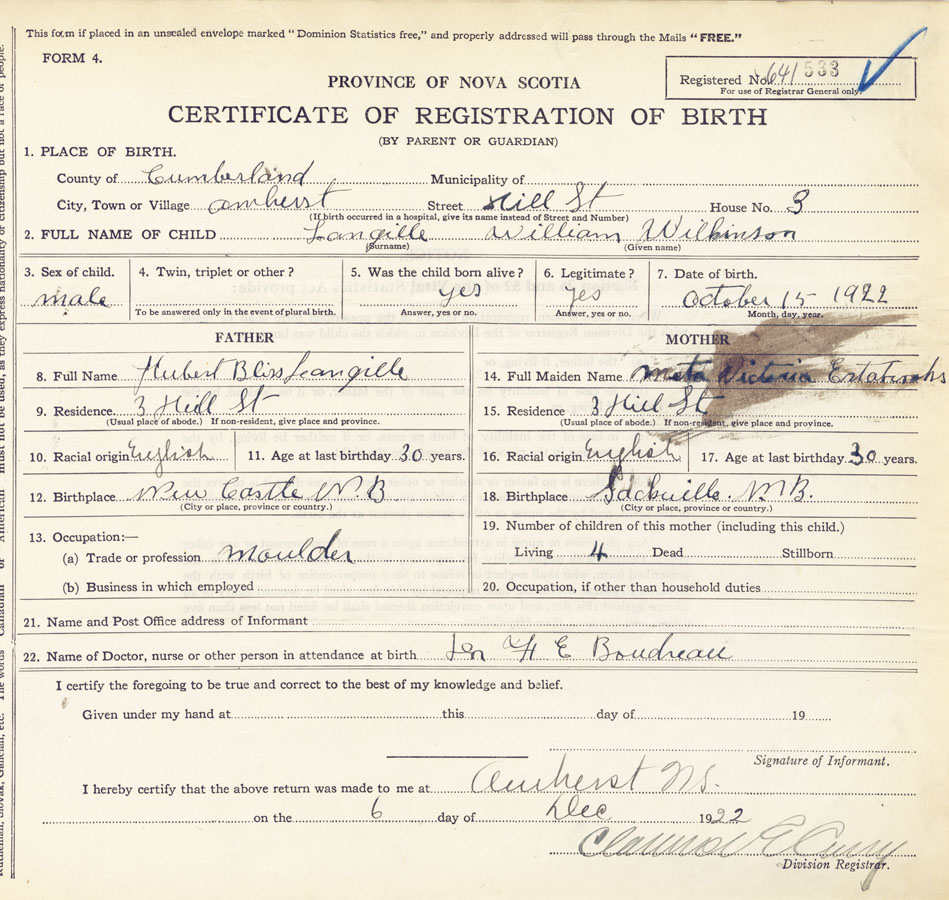 This form if placed in an unsealed envelope marked "Dominion Statistics free," and properly addressed will pass through the Mails "FREE."
FORM 4.
Registered No. 641533
For use of Registrar General only.
PROVINCE OF NOVA SCOTIA
CERTIFICATE OF REGISTRATION OF BIRTH
(BY PARENT OR GUARDIAN)
1. PLACE OF BIRTH.
County of Cumberland Municipality of
City, Town or Village Amherst Street Hill St House No. 3
(If birth occurred in a hospital, give its name instead of Street and Number)
2. FULL NAME OF CHILD Langille William Wilkinson
(Surname) (Given name)
3. Sex of child. 4. Twin, triplet or other? 5. Was the child born alive? 6. Legitimate? 7. Date of birth.
male yes yes October 15 1922
To be answered only in the event of plural birth. Answer, yes or no. Answer, yes or no. Month, day, year.
FATHER MOTHER
8. Full Name Hubert Bliss Langille 14. Full Maiden Name Meta Victoria Estabrooks
9. Residence. 3 Hill St 15. Residence 3 Hill St
(Usual place of abode.) If non-resident, give place and province. (Usual place of abode.) If non-resident, give place and province.
10. Racial origin English 11. Age at last birthday 30 years. 16. Racial origin English 17. Age at last birthday 30 years.
12. Birthplace New Castle N.B 18. Birthplace Sackville. N.B.
(City or place, province or country.) (City or place, province or country.)
13. Occupation:— 19. Number of children of this mother (including this child.)
(a) Trade or profession moulder Living 4 Dead Stillborn
(b) Business in which employed 20. Occupation, if other than household duties
21. Name and Post Office address of Informant
22. Name of Doctor, nurse or other person in attendance at birth E Boudreau
I certify the foregoing to be true and correct to the best of my knowledge and belief.
Given under my hand at this day of 19
Signature of Informant.
I hereby certify that the above return was made to me at Amherst N.S.
on the 6 day of Dec 1922
Division Registrar.